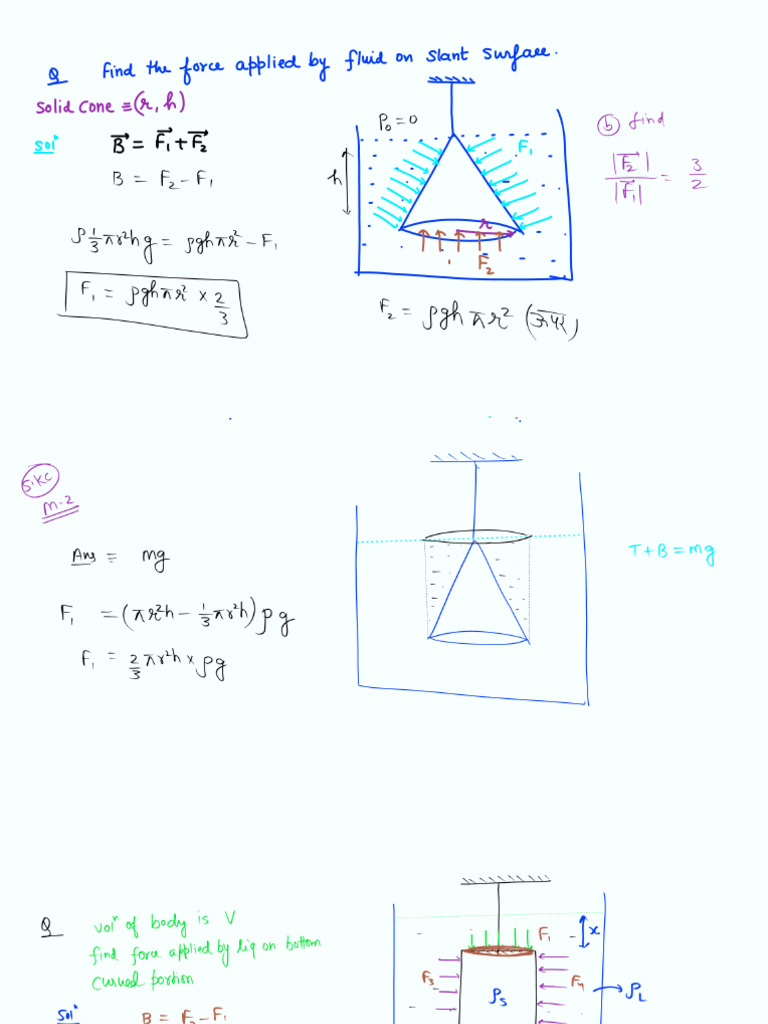 Q Find the force applied by fluid on slant surface.
Solid Cone ≡ (r, h)
Solⁿ B⃗ = F⃗₁ + F⃗₂
B = F₂ - F₁
ρ 1/3 πr²h g = ρghπr² - F₁
F₁ = ρghπr² × 2/3
P₀ = 0
F₁
h
r
F₂
F₂ = ρghπr²
(b) find
|F⃗₂| / |F⃗₁| = 3/2
SKC
M-2
Ans = mg
F₁ = (πr²h - 1/3 πr²h) ρg
F₁ = 2/3 πr²h × ρg
T + B = mg
Q volⁿ of body is V
find force applied by liq on bottom
curved portion
Solⁿ B = F₂ - F₁
F₁
x
F₃
F₄
ρS
ρL